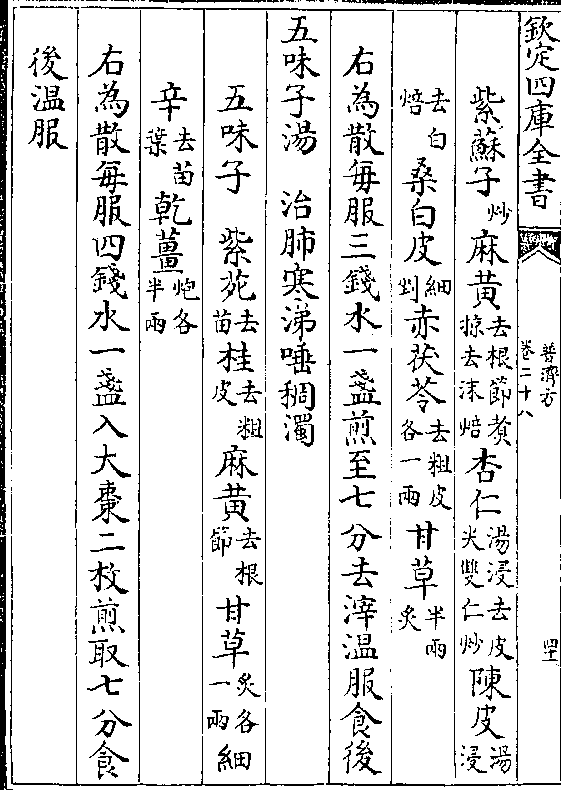 欽定四庫全書
普濟方
卷二十八
四十
紫蘇子炒麻黃去根節煑掠去沫焙杏仁湯浸去皮尖雙仁炒陳皮湯浸
去白焙桑白皮細剉赤茯苓去粗皮各一兩甘草半兩炙
右為散每服三錢水一盞煎至七分去滓温服食後
五味子湯　治肺寒涕唾稠濁
五味子　紫苑去苗桂去粗皮麻黃去根節甘草炙各一兩細
辛去苗葉乾薑炮各半兩
右為散每服四錢水一盞入大棗二枚煎取七分食
後温服